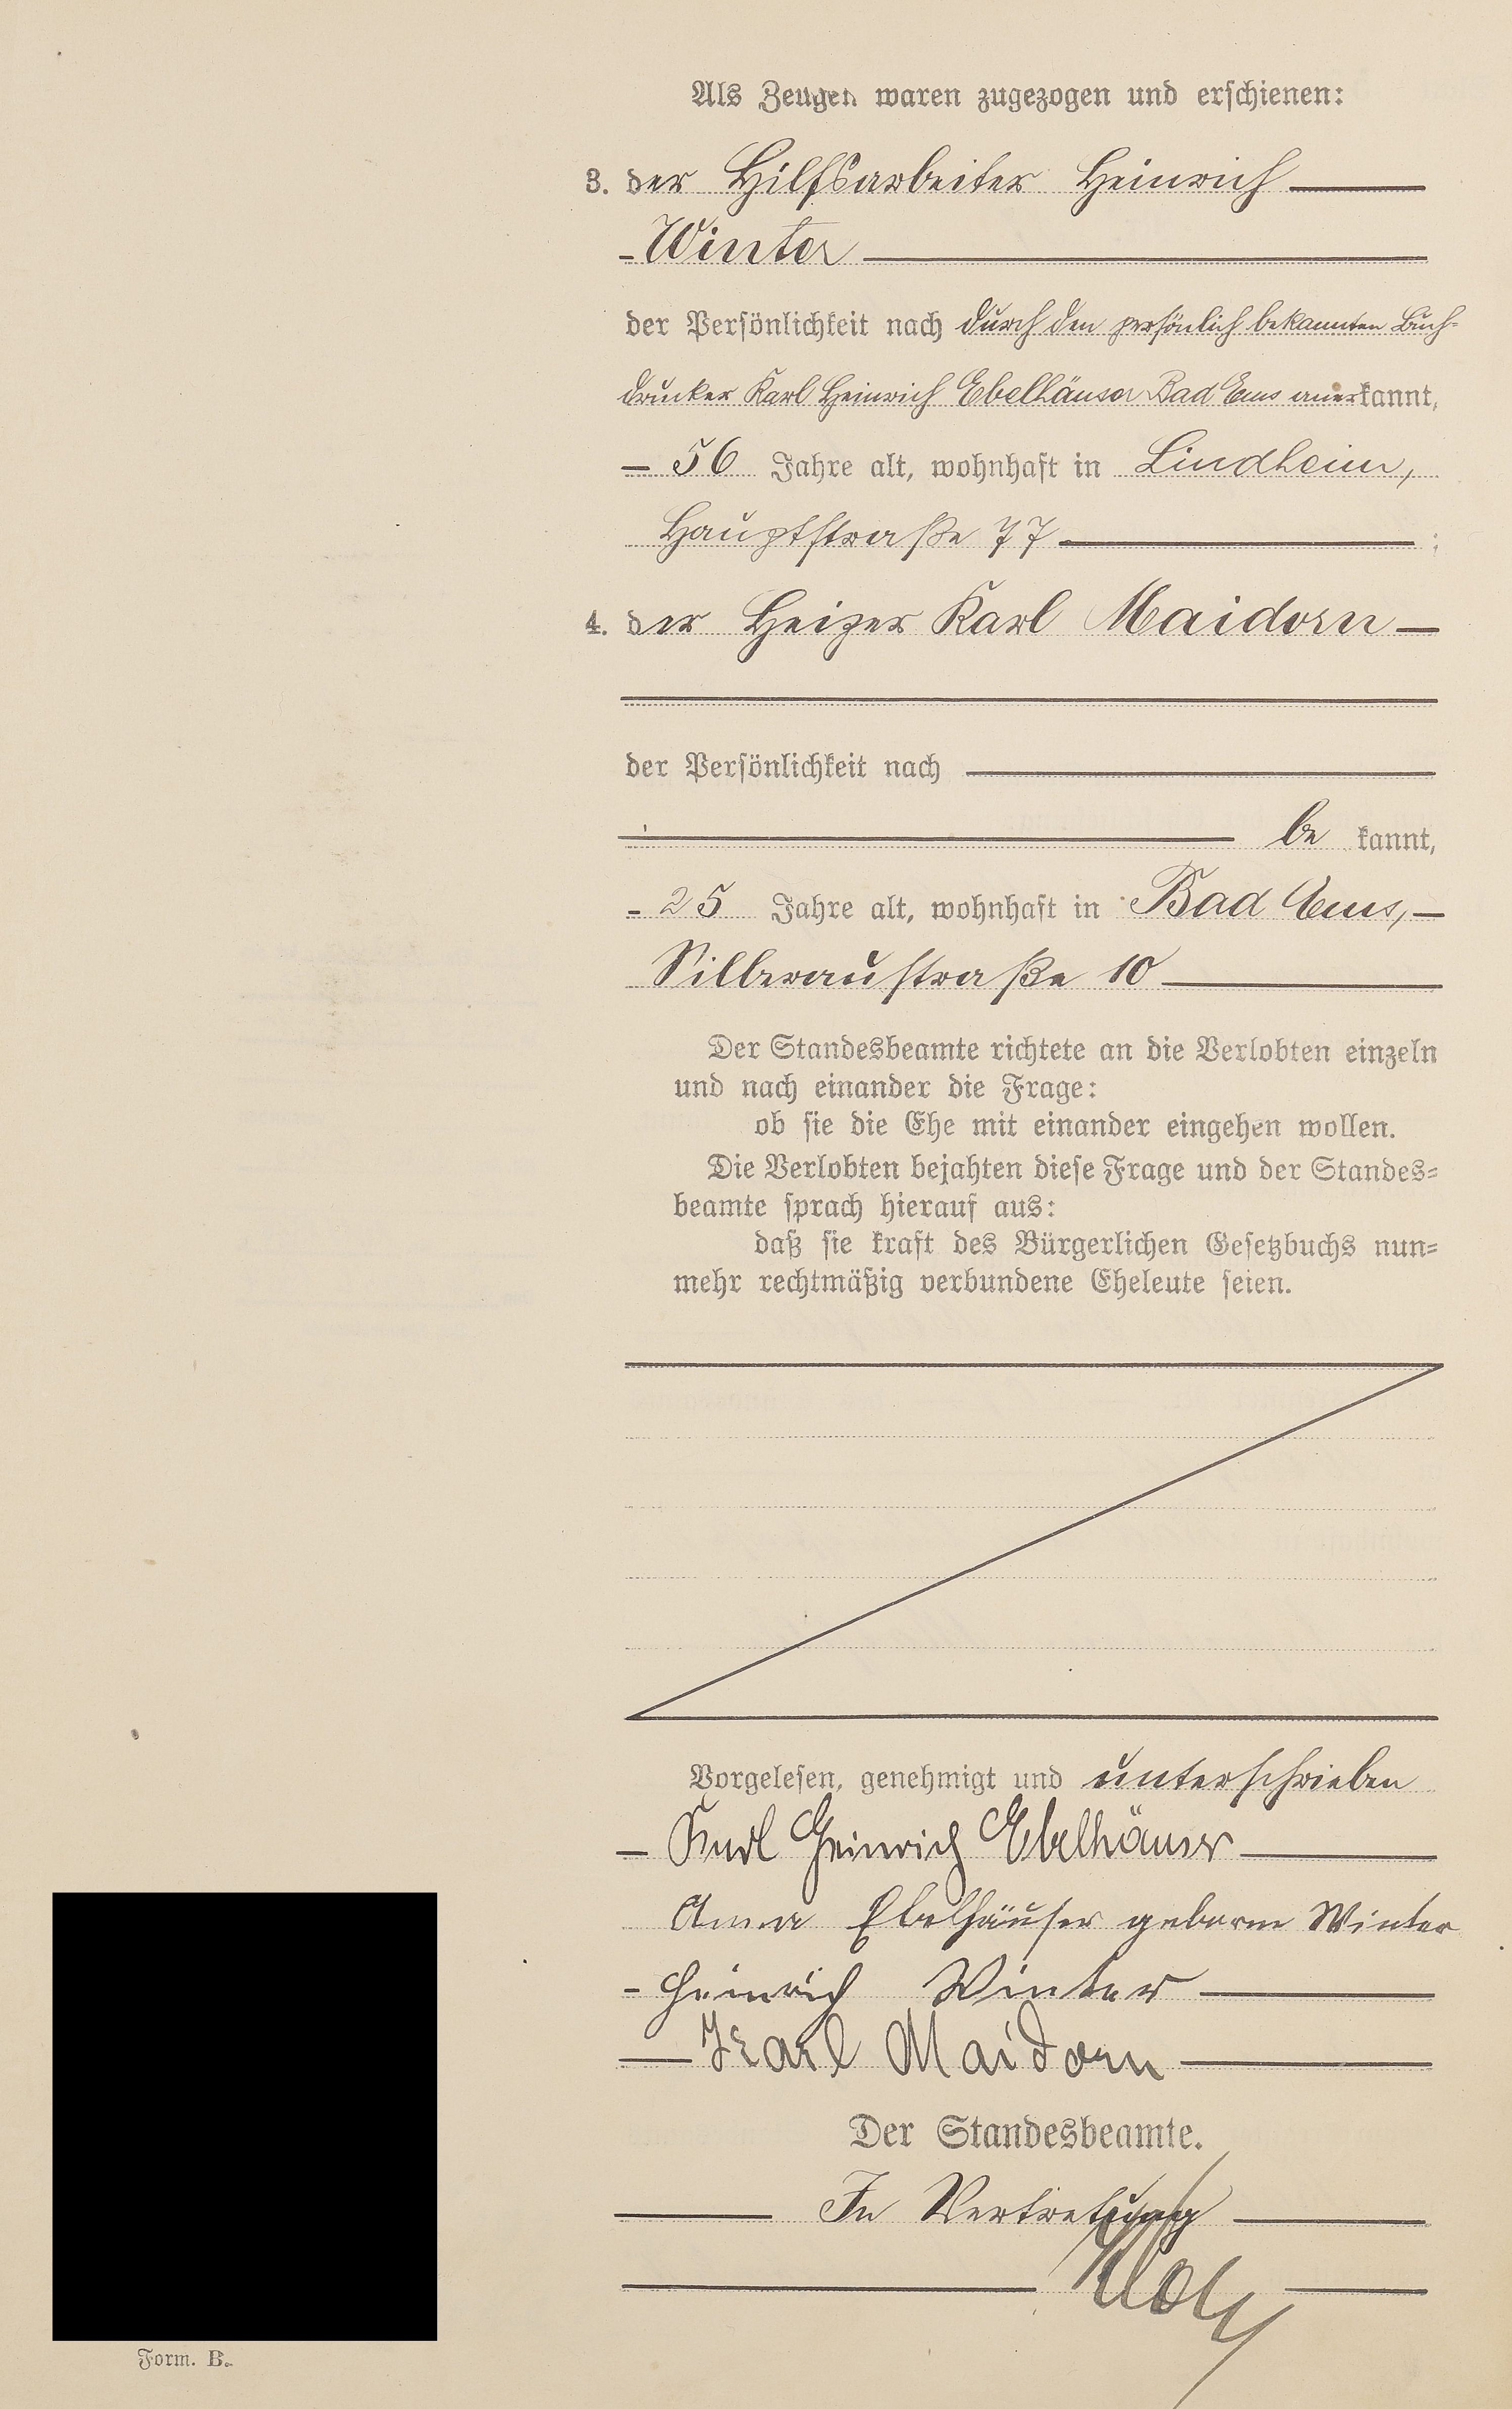 Als Zeugen waren zugezogen und erschienen:
3. der Hilfsarbeiter Heinrich
Winter
der Persönlichkeit nach durch den persönlich bekannten Buch-
drucker Karl Heinrich Ebelhäuser Bad Ems anerkannt,
56 Jahre alt, wohnhaft in Lindheim,
Hauptstraße 77 ;
4. der Heizer Karl Maidorn
der Persönlichkeit nach
be kannt,
25 Jahre alt, wohnhaft in Bad Ems,
Silberaustraße 10
Der Standesbeamte richtete an die Verlobten einzeln
und nach einander die Frage:
ob sie die Ehe mit einander eingehen wollen.
Die Verlobten bejahten diese Frage und der Standes-
beamte sprach hierauf aus:
daß sie kraft des Bürgerlichen Gesetzbuchs nun-
mehr rechtmäßig verbundene Eheleute seien.
Vorgelesen, genehmigt und unterschrieben
Karl Heinrich Ebelhäuser
Anna Ebelhäuser geborne Winter
Heinrich Winter
Karl Maidorn
Der Standesbeamte.
In Vertretung
Form. B.